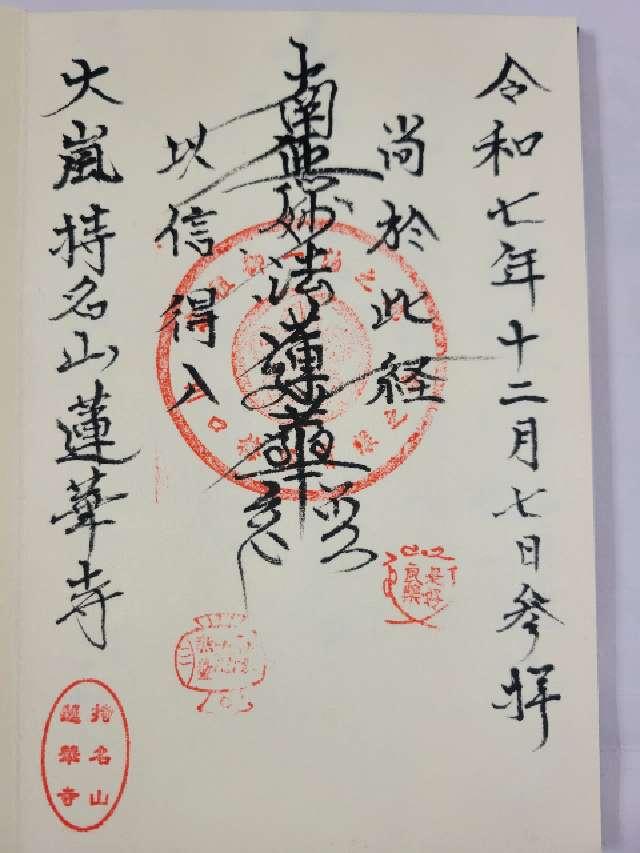 令和七年十二月七日参拝
尚於此経
南無妙法蓮華経
以信得入
大嵐持名山蓮華寺
是好
良薬
持名山
蓮華寺